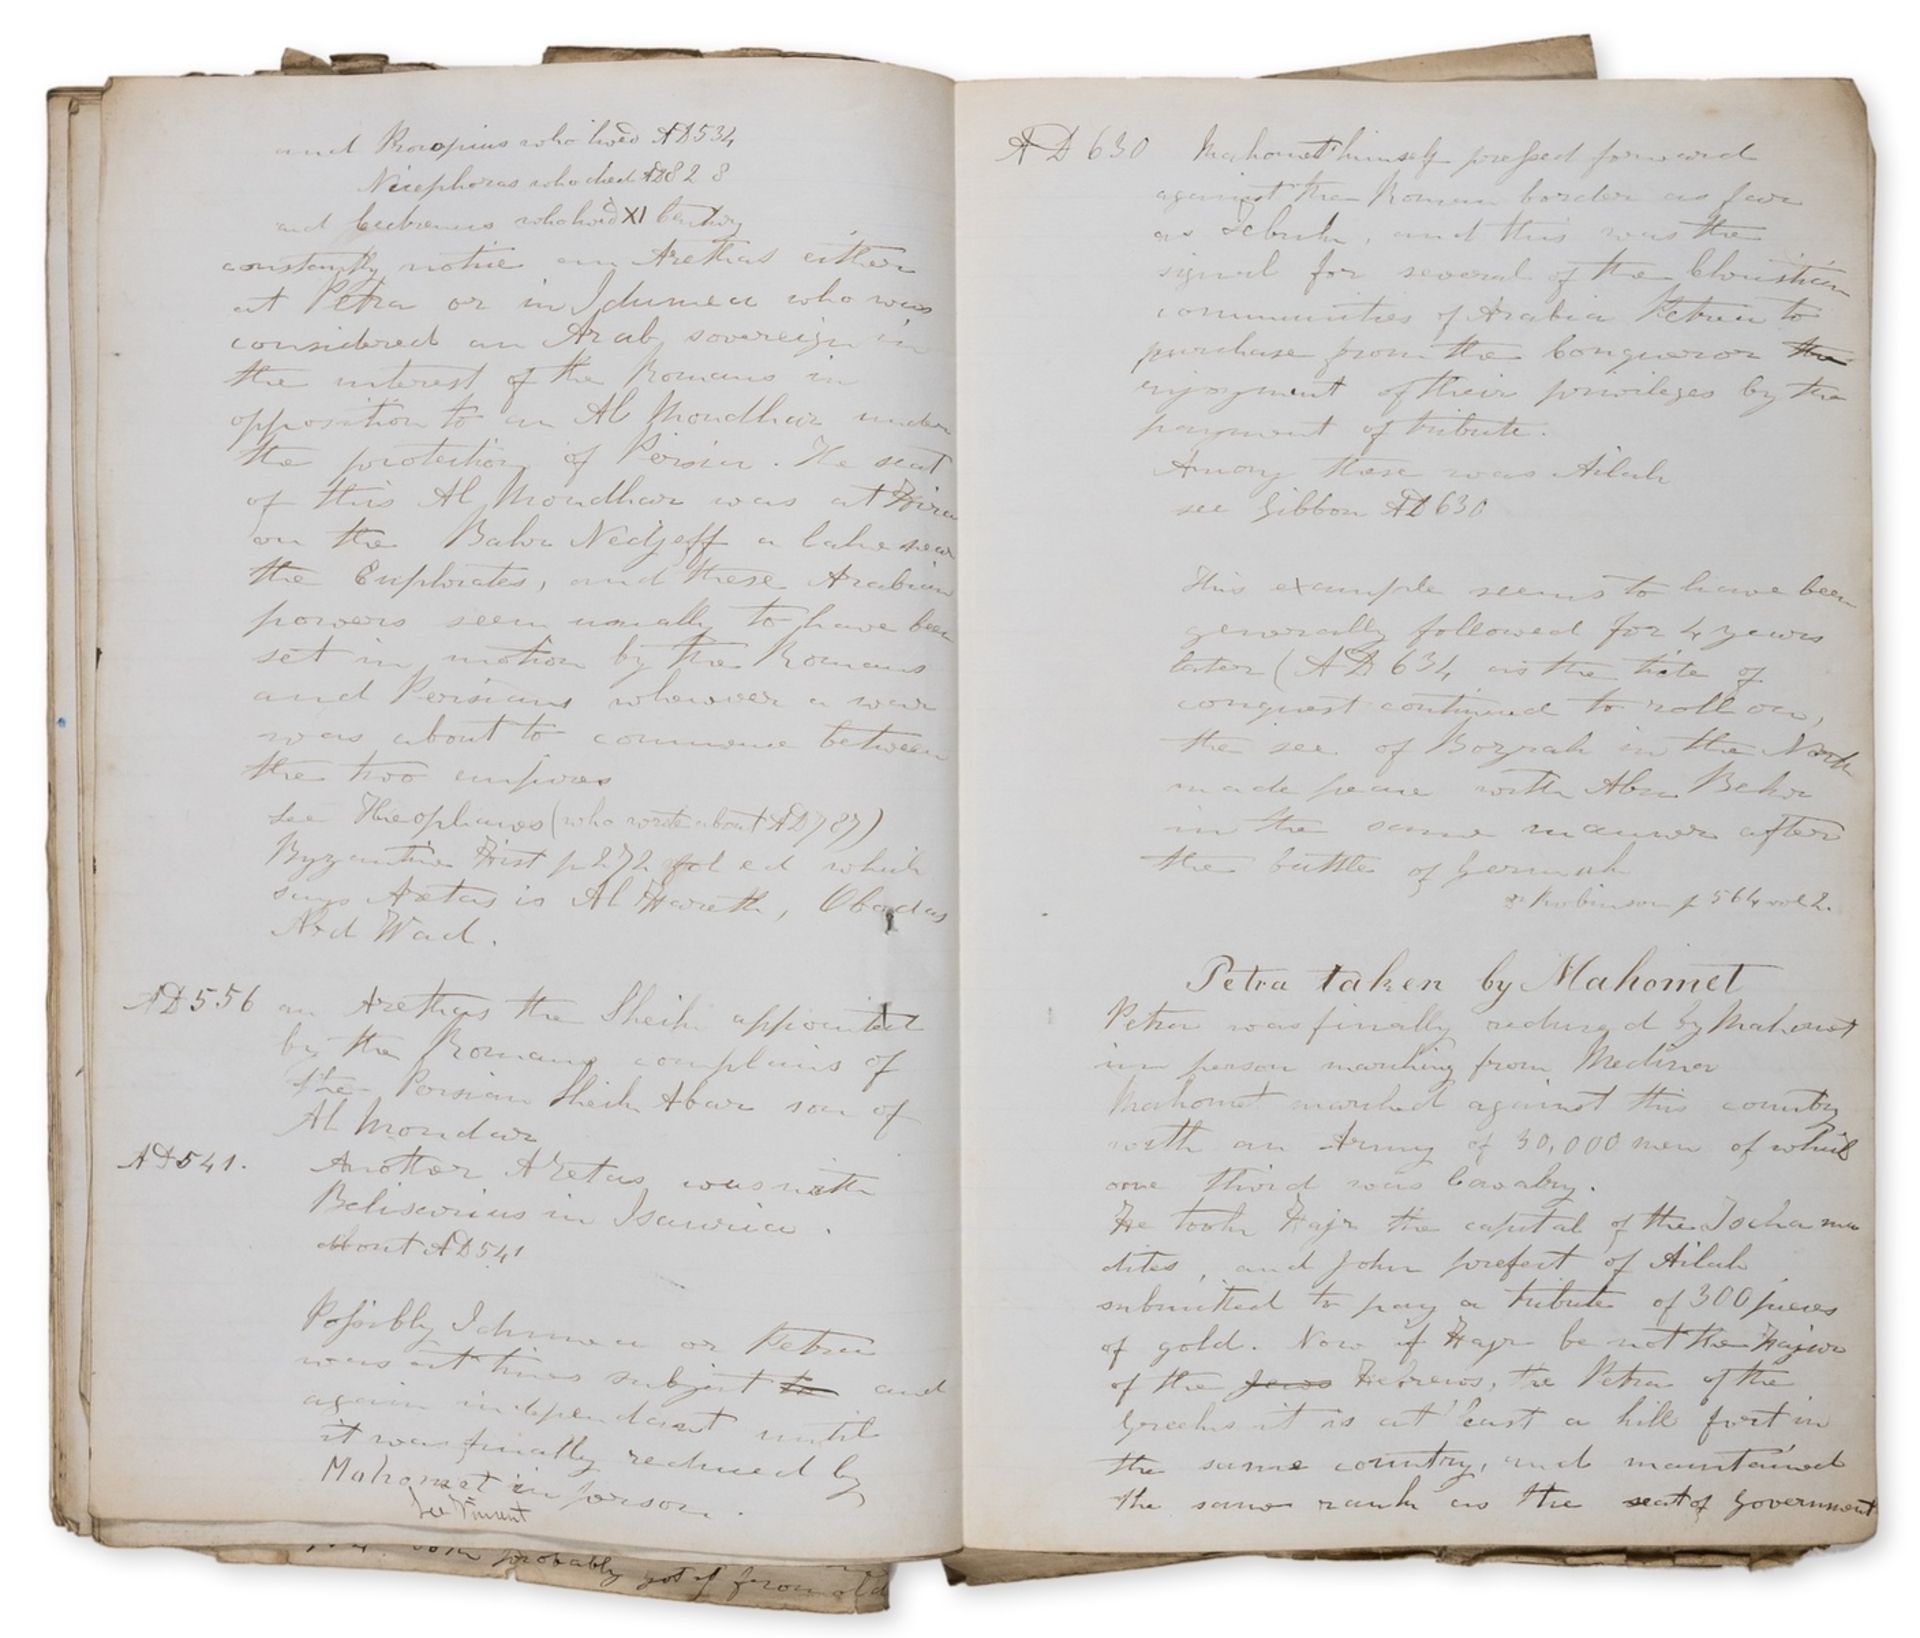 and Procopius who lived AD 534
Nicephoras who died AD 828
and Cedrenus who lived XI Century
constantly notice an Arethas either
at Petra or in Idumea who was
considered an Arab sovereign in
the interest of the Romans in
opposition to an Al Mondhar under
the protection of Persia. The seat
of this Al Mondhar was at Hira
on the Bahr Nedjeff a lake near
the Euphrates, and these Arabian
powers seem usually to have been
set in motion by the Romans
and Persians whenever a war
was about to commence between
the two empires
see Theophanes (who wrote about AD 787)
Byzantine Hist p 272 fol ed which
says Aretas is Al Hareth, Obodas
Abd Wad.
AD 556 an Arethas the Sheik appointed
by the Romans complains of
the Persian Sheik Abar son of
Al Mondar
AD 541. Another Aretas was with
Belisarius in Isauria.
about AD 541
Possibly Idumea or Petra
was at times subject to and
again independant until
it was finally reduced by
Mahomet in person.
See Vincent
probably got it from old
AD 630 Mahomet himself pressed forward
against the Roman border as far
as Tebuk, and this was the
signal for several of the Christian
communities of Arabia Petrea to
purchase from the Conqueror the
enjoyment of their privileges by the
payment of tribute.
Among these was Ailah
see Gibbon AD 630
This example seems to have been
generally followed for 4 years
later (AD 634 as the tide of
conquest continued to roll on,
the see of Bozrah in the North
made peace with Abu Bekr
in the same manner after
the battle of Yermuk
Dr Robinson p 564 vol 2.
Petra taken by Mahomet
Petra was finally reduced by Mahomet
in person marching from Medina
Mahomet marched against this country
with an Army of 30,000 men of which
one third was Cavalry.
He took Hajr the capital of the Tscha mu
dites, and John prefect of Ailah
submitted to pay a tribute of 300 pieces
of gold. Now if Hajr be not the Hajar
of the Jews Hebrews, the Petra of the
Greeks it is at least a hill fort in
the same country, and maintained
the same rank as the seat of Government